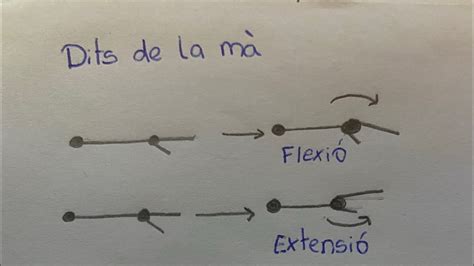 Dits de la mà
Flexió
Extensió